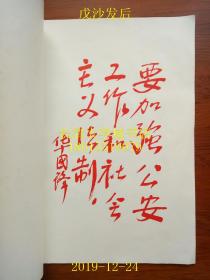 戊沙发后
要加强公安
工作和社会
主义法制！
华國锋
2019-12-24